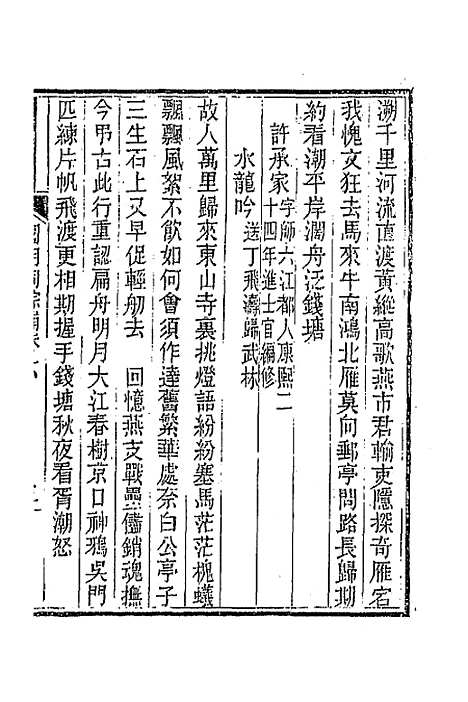 溯千里河流直渡黄繩高歌燕市君輸吏隱探奇雁宕
我愧文狂去馬來牛南鴻北雁莫向郵亭問路長歸拗
約看潮平岸濶舟泛錢塘
許承家字師六江都人康熙二
十四年進士官編修
水龍吟送丁飛濤歸武林
故人萬里歸來東山寺裏挑燈語紛紛塞馬茫茫槐蟻
飄飄風絮不飲如何會須作達舊繁華處奈白公亭子
三生石上又早促輕舠去　回憶燕支戰壘儘銷魂撫
今弔古此行重認扁舟明月大江春樹京口神鴉吳門
匹練片帆飛渡更相期握手錢塘秋夜看胥潮怒
國朝詞綜補卷